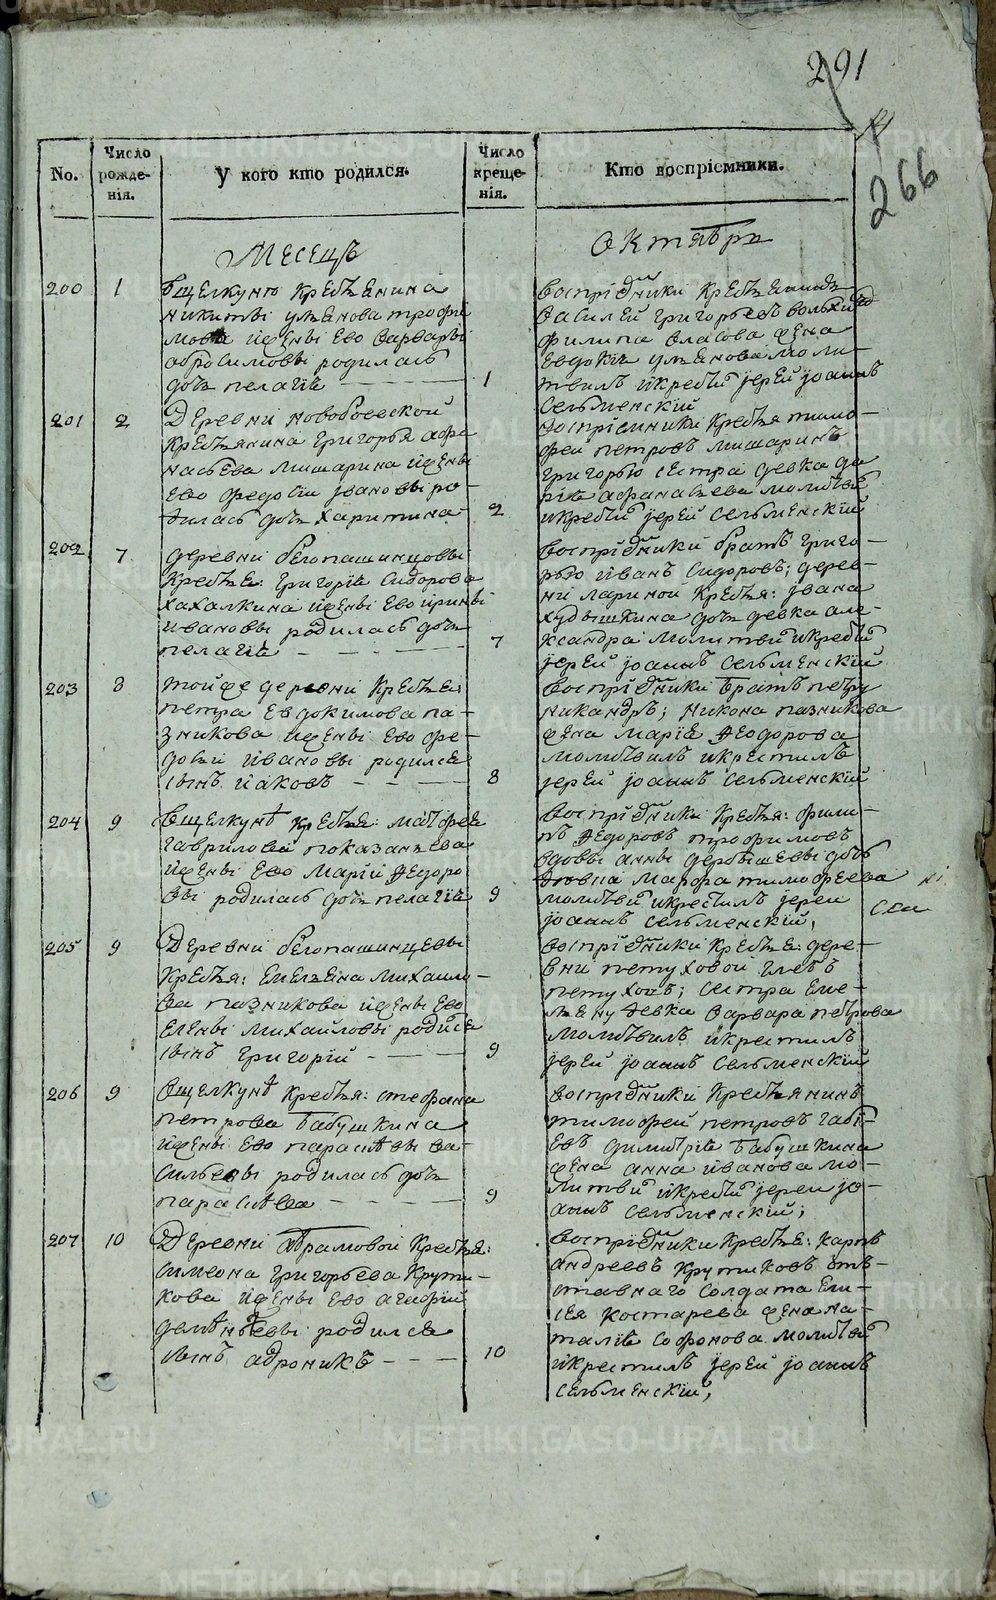 291
266
No.
Число рожде-нія.
У кого кто родился.
Число креще-нія.
Кто воспріемники.
Месецъ
Октября
200
1
Вщелкуню Крестьянина
никиты ульянова трофи
мова ижены Ево варвары
абросимовы родиласъ
дочь пелагія
1
воспріемники Крестьянинъ
василей григорьевъ
филипа власова жена
Евдокія ульянова моли-
твилъ икрестил јерей јоаннъ
Сельменскій
201
2
Деревни новобоевской
Крестьянина григорья афо
насьева мишарина ижены
Ево федосіи јвановы ро-
дилась дочь харитина
2
воспріемники Крестья тимо-
фей петровъ мишаринъ
григорью сестра девка да
рія афанасьева молитвил
икрестил јерей Сельменскій
202
7
деревни белопашинцовы
Крестья: григорія Сидорова
хахалкина ижены Ево ирины
ивановы родиласъ дочь
пелагія
7
воспріемники братъ григо-
рью иванъ Сидоровъ; дерев-
ни лариной Крестья: јвана
худышкина дочь девка але-
ксандра молитвил икрестил
јерей јоаннъ Сельменскій
203
8
тойже деревни Крестья:
петра Евдокимова па-
зникова ижены Ево фе-
досьи ивановы родился
сынъ иаковъ
8
воспріемники братъ петру
никандръ; никона пазникова
жена марія Федорова
молитвилъ икрестилъ
јерей јоаннъ Сельменскій
204
9
Вщелкунѣ Крестья: матфея
гаврилова показаньева
ижены Ево Маріи Федоро
вы родиласъ дочь пелагія
9
воспріемники Крестья: фили-
пъ Федоровъ трофимовъ
вдовы анны дербышевы дочь
Девка Марфа тимофеева
молитвил икрестилъ јереи
јоаннъ Сельменскій,
205
9
Деревни белопашинцевы
Крестья: Емельяна михаило-
ва пазникова ижены Ево
Елены михайловы родился
сынъ григорій
9
воспріемники Крестья: дере-
вни петуховой глебъ
петуховъ; сестра Еме-
льяну Девка варвара петрова
молитвилъ икрестилъ
јерей јоаннъ Сельменскій
206
9
Вщелкунѣ Крестья: стефана
петрова бабушкина
ижены Ево парасковьи ва-
сильевы родиласъ дочь
9
воспріемники Крестьянинъ
тимофей петровъ
димитрія бабушкина
жена анна иванова мо-
литвил икрестил јереи јо-
аннъ Сельменскій;
207
10
Деревни абрамовой Крестья:
симеона григорьева Крути-
кова ижены Ево агафіи
родился
сынъ адроникъ
10
воспріемники Крестья: карпъ
андреевъ крутиковъ от-
ставнаго солдата Ели-
сея костарева жена на-
талія софонова молитвил
икрестилъ јерей јоаннъ
Сельменскій,
METRIKI.GASO-URAL.RU